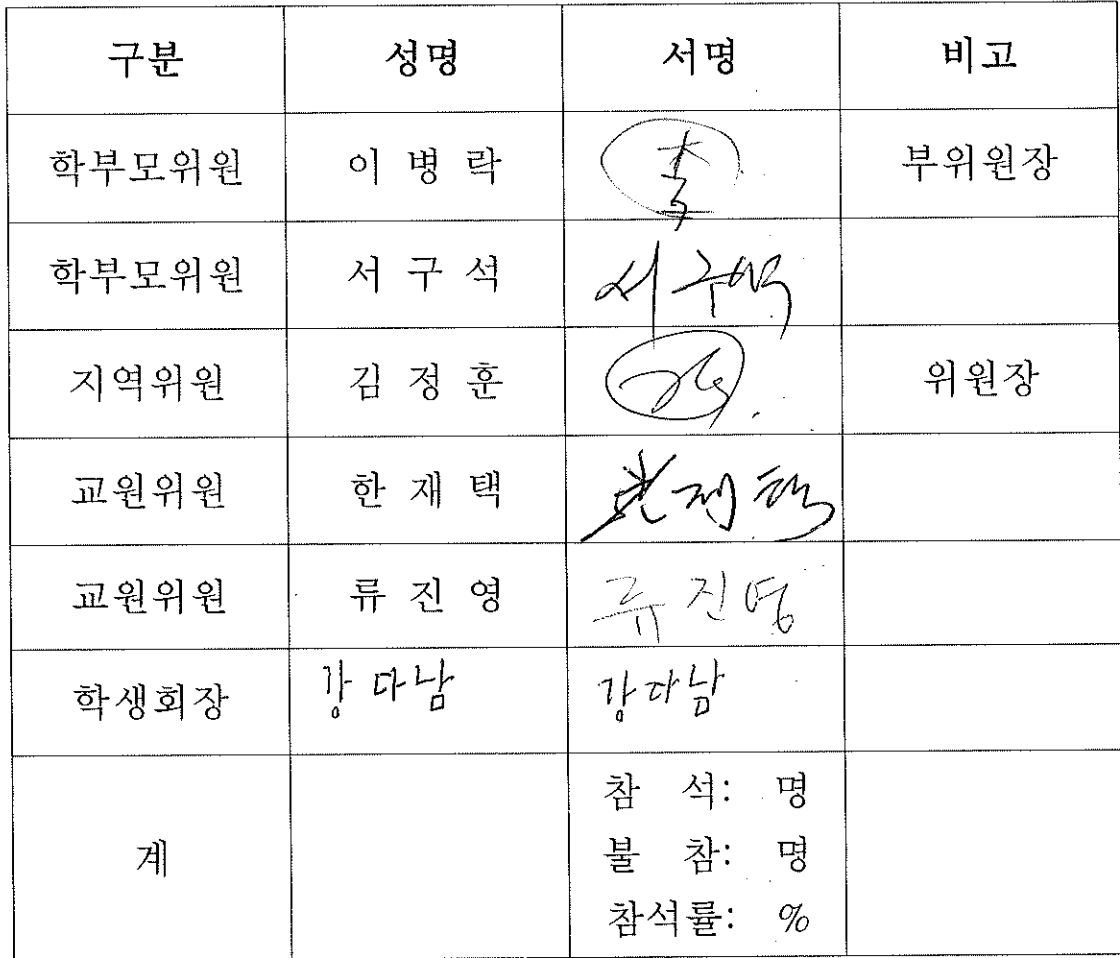 구분 성명 서명 비고
학부모위원 이 병 락 부위원장
학부모위원 서 구 석 서구석
지역위원 김 정 훈 위원장
교원위원 한 재 택 재택
교원위원 류 진 영 류진영
학생회장 강다남 강다남
참 석: 명
계 불 참: 명
참석률: %